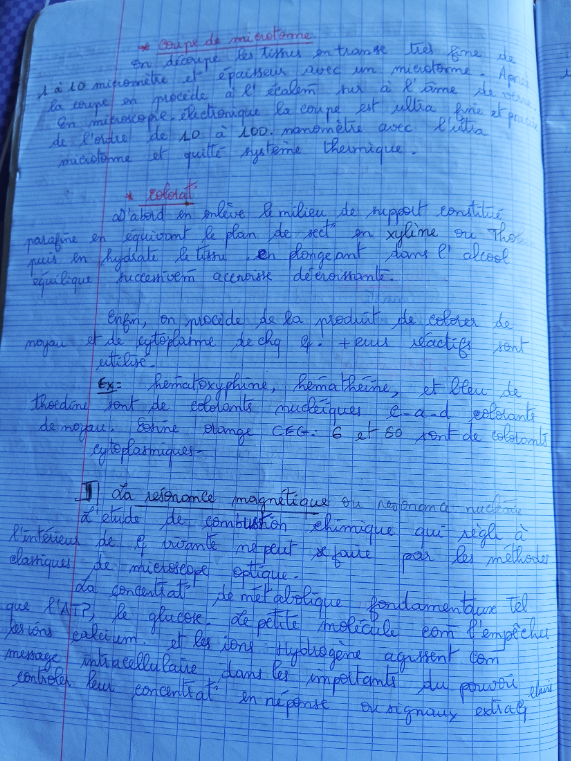 * Coupe de microtome
On découpe les tissus en transe très fine de
1 à 10 micromètre et épaisseur avec un microtome. Après
la coupe on procède à l'écalem sur à l'âme de verre.
En microscopie électronique la coupe est ultra fine et
de l'ordre de 10 à 100. nanomètre avec l'ultra
microtome et quitté système thermique.
* Colorat°
D'abord on enlève le milieu de support constitué
parafine en équivant le plan de sect° en xylène ou
puis en hydrate le tissu en plongeant dans l'alcool
successivem décroissante.
Enfin, on procède de la produit de colorer de
noyau et de cytoplasme de chq . + réactifs sont
utilisé.
Ex: hématoxyphine, hématheïne, et bleu de
sont de colorants nucléiques c-a-d colorants
de noyau. orange 6 et 50 sont de colorants
cytoplasmiques-
I La résonance magnétique ou resonance
L'étude de combustion chimique qui règle à
l'intérieur de vivante ne peut se faire par les méthodes
classiques de microscope optique.
La concentrat° de métabolique fondamentaux Tel
que l'ATP, le glucose. Le petite molécule com l'empêcher
les ions calcium et les ions Hydrogène agissent com
message intracellulaire dans les importants du pouvoir
contrôler leur concentrat° en réponse ou signaux